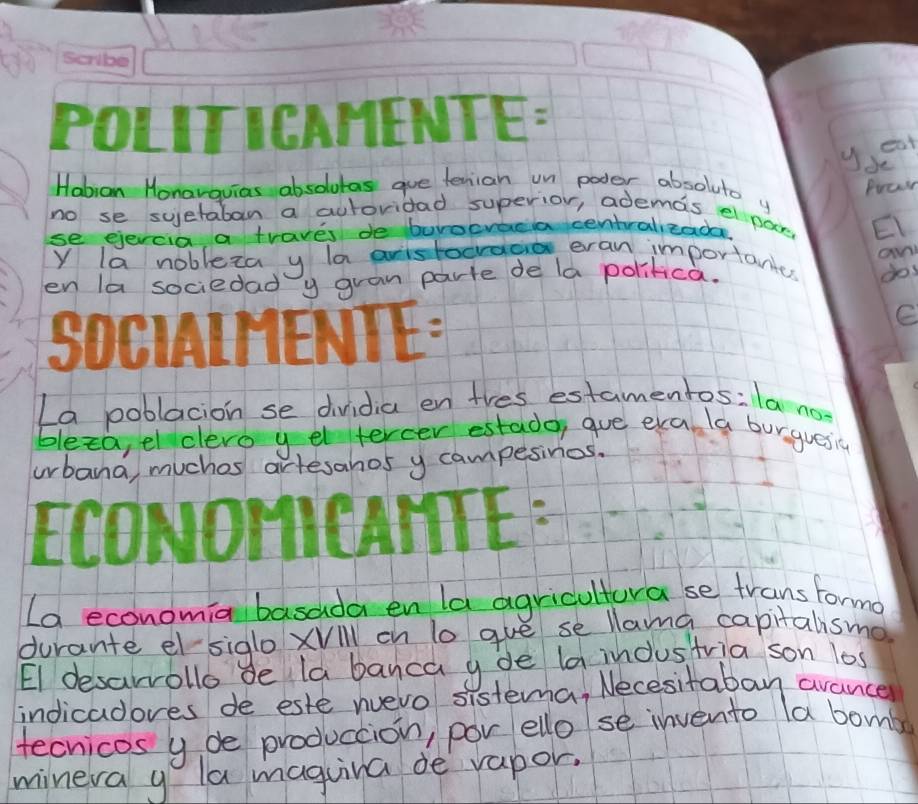 Scribe
POLITICAMENTE:
Habian Monarquias absolutas que tenian un poder absoluto y
no se sujetaban a autoridad superior, además el poder
se ejercia a traves de burocracia centralizada.
Y la nobleza y la aristocracia eran importantes
en la sociedad y gran parte de la politica.
SOCIALMENTE:
La poblacion se dividia en tres estamentos: la no-
bleza, el clero y el tercer estado, que era la burguesia
urbana, muchos artesanos y campesinos.
ECONOMICAMTE:
La economia basada en la agricultura se transformo
durante el siglo XVIII en lo que se llama capitalismo.
El desarrollo de la banca y de la industria son los
indicadores de este nuevo sistema, Necesitaban avances
tecnicos y de producción, por ello se invento la bomba
minera y la maquina de vapor.
y
de
El